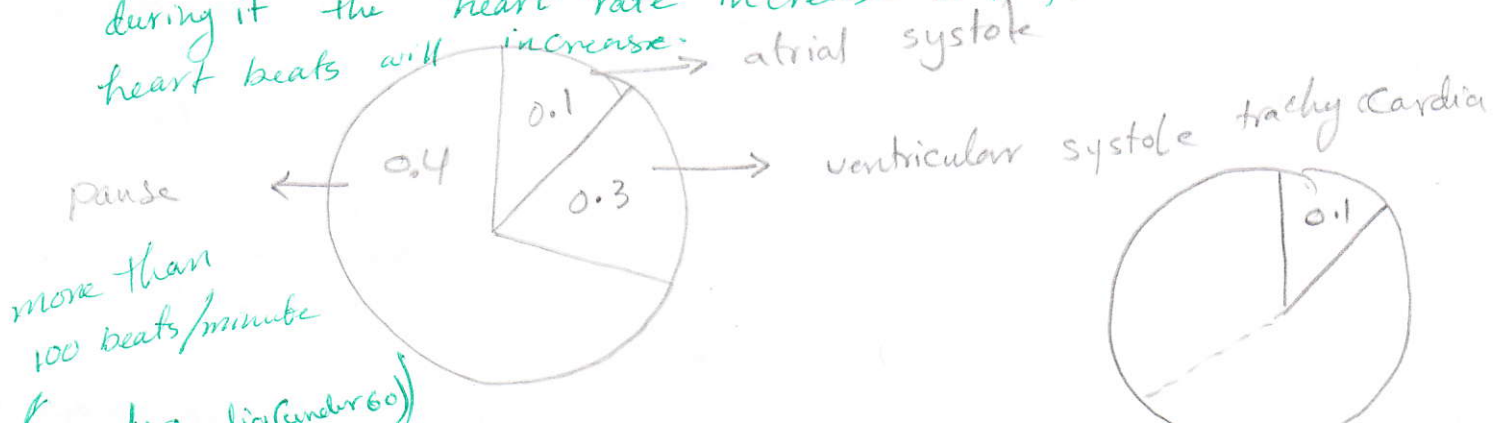 during it the heart rate increase
heart beats will increase.
atrial systole
0.1
0.4
0.3
ventricular systole
trachy cardia
pause
0.1
more than
100 beats/minute
(under 60))